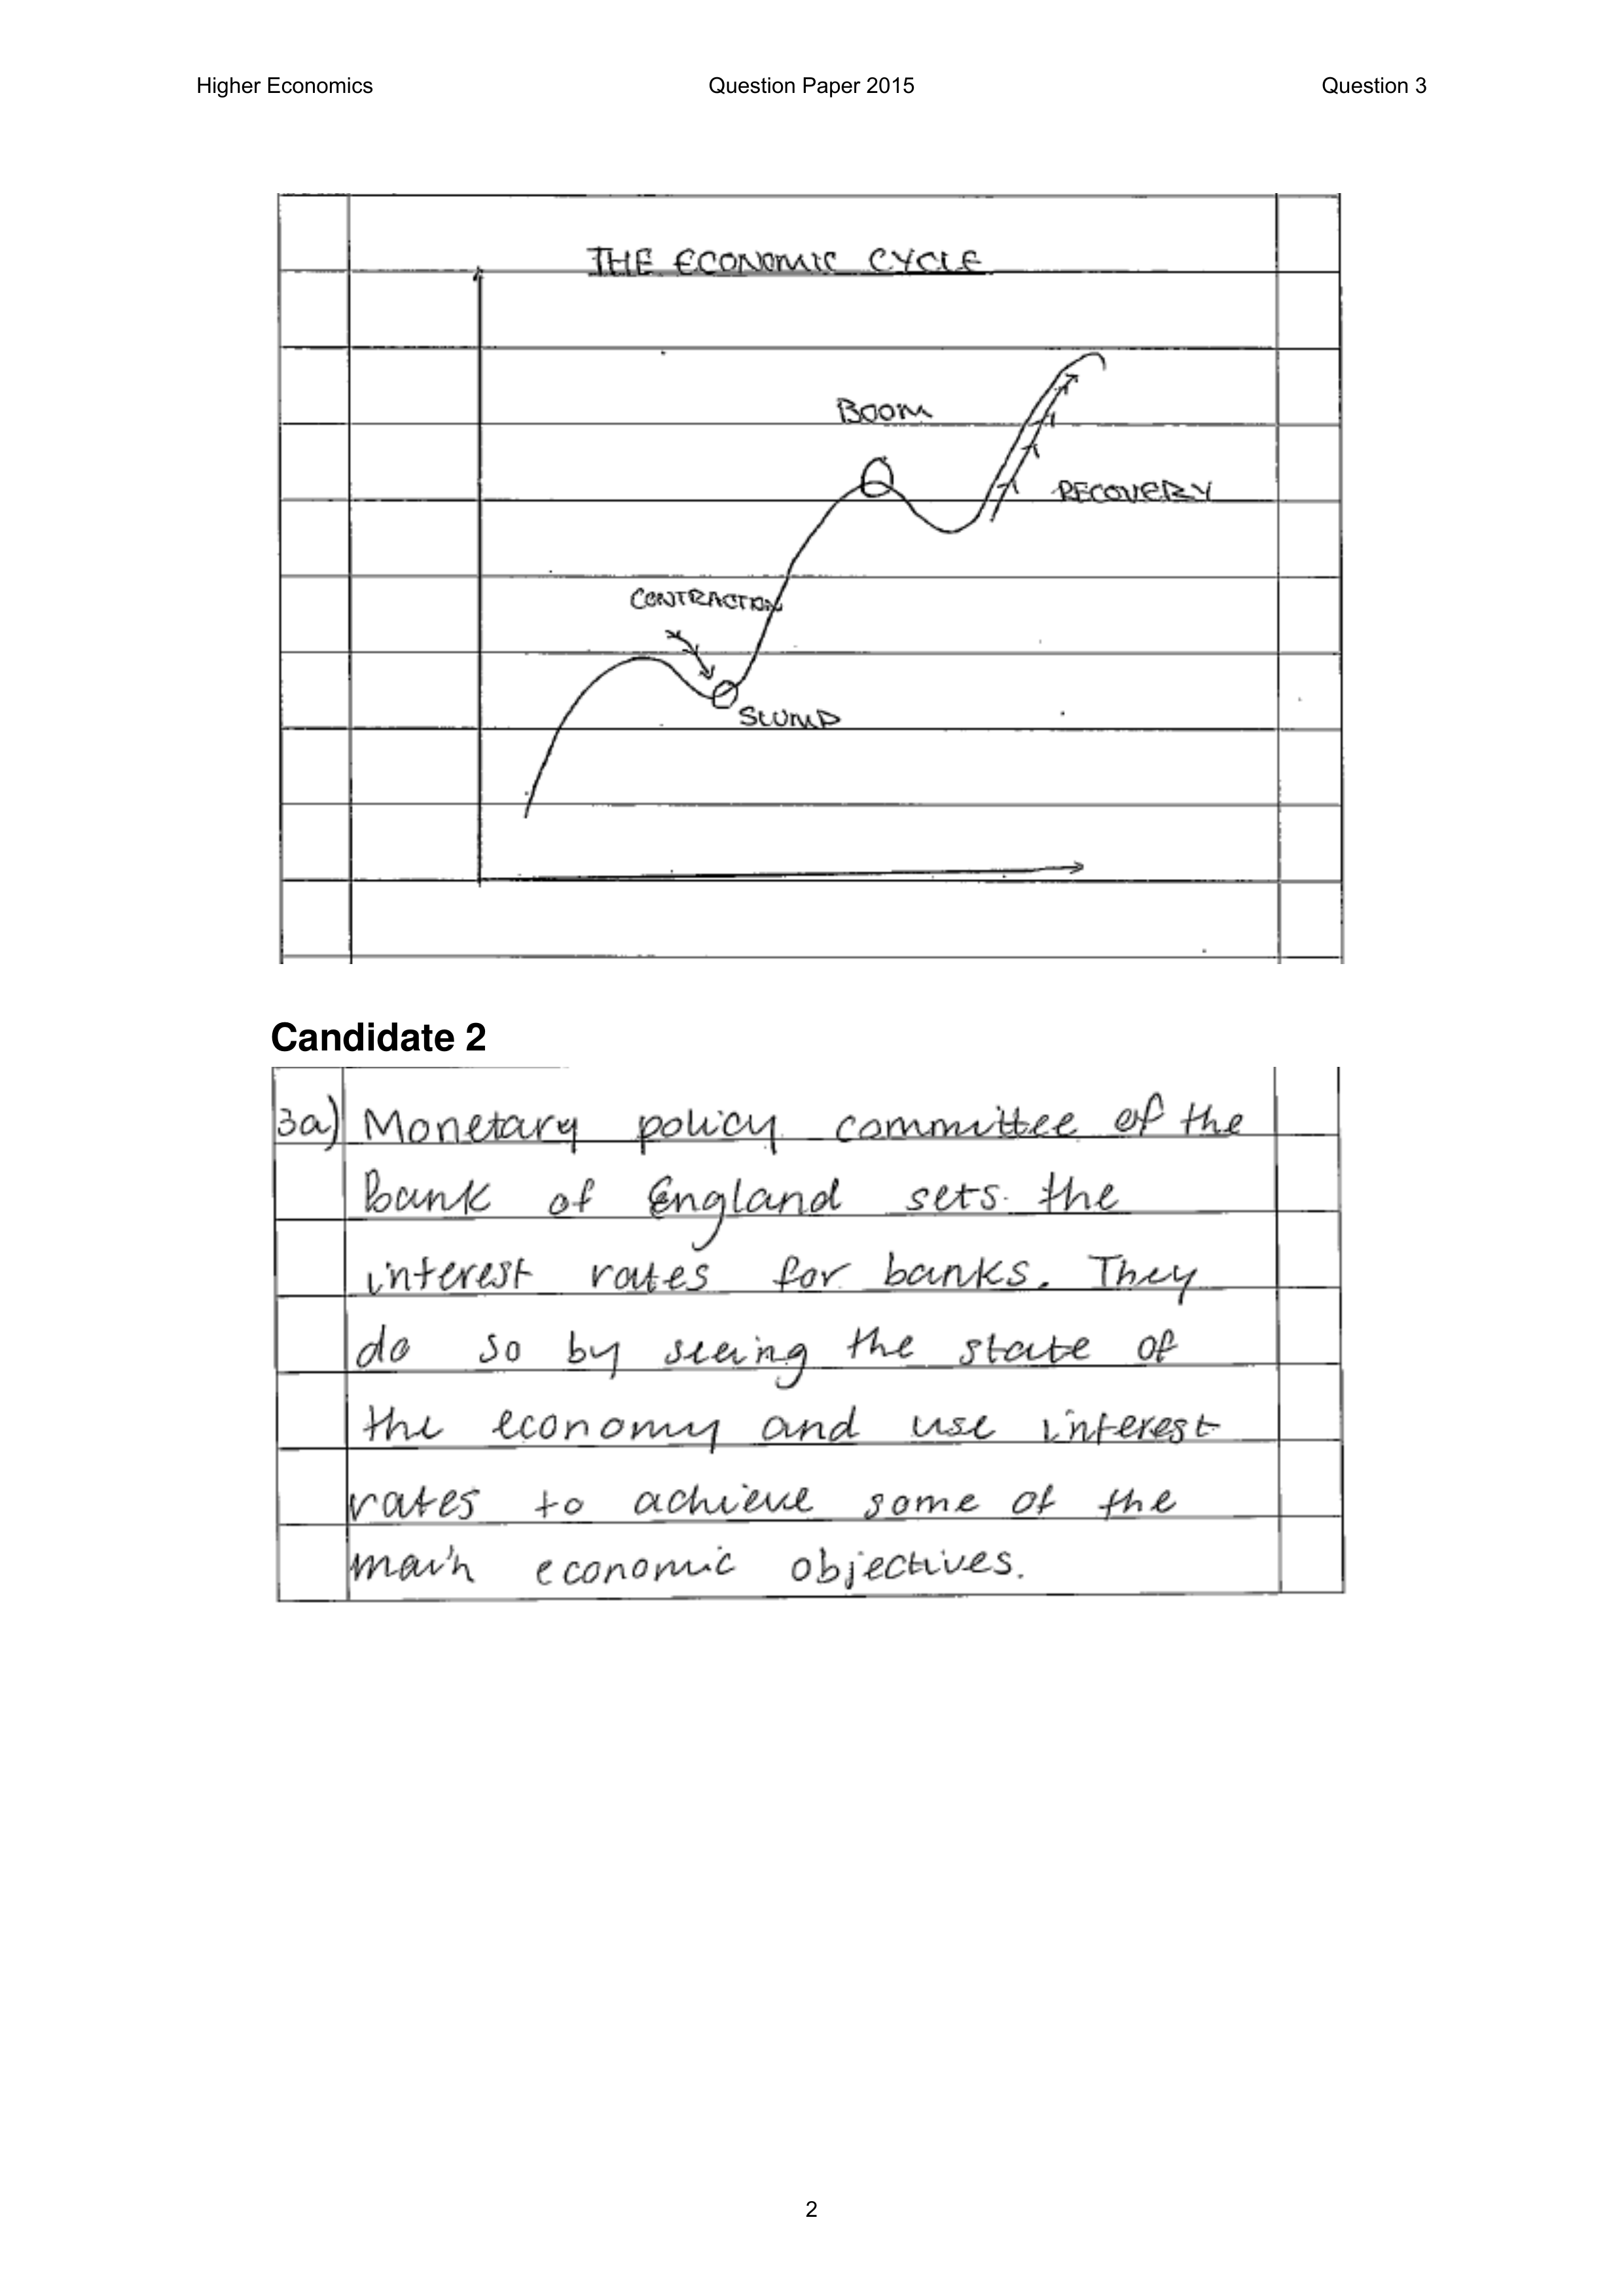 Higher Economics Question Paper 2015 Question 3
THE ECONOMIC CYCLE
BOOM
RECOVERY
CONTRACTION
SLUMP
Candidate 2
3a) Monetary policy committee of the
Bank of England sets the
interest rates for banks. They
do so by seeing the state of
the economy and use interest
rates to achieve some of the
main economic objectives.
2